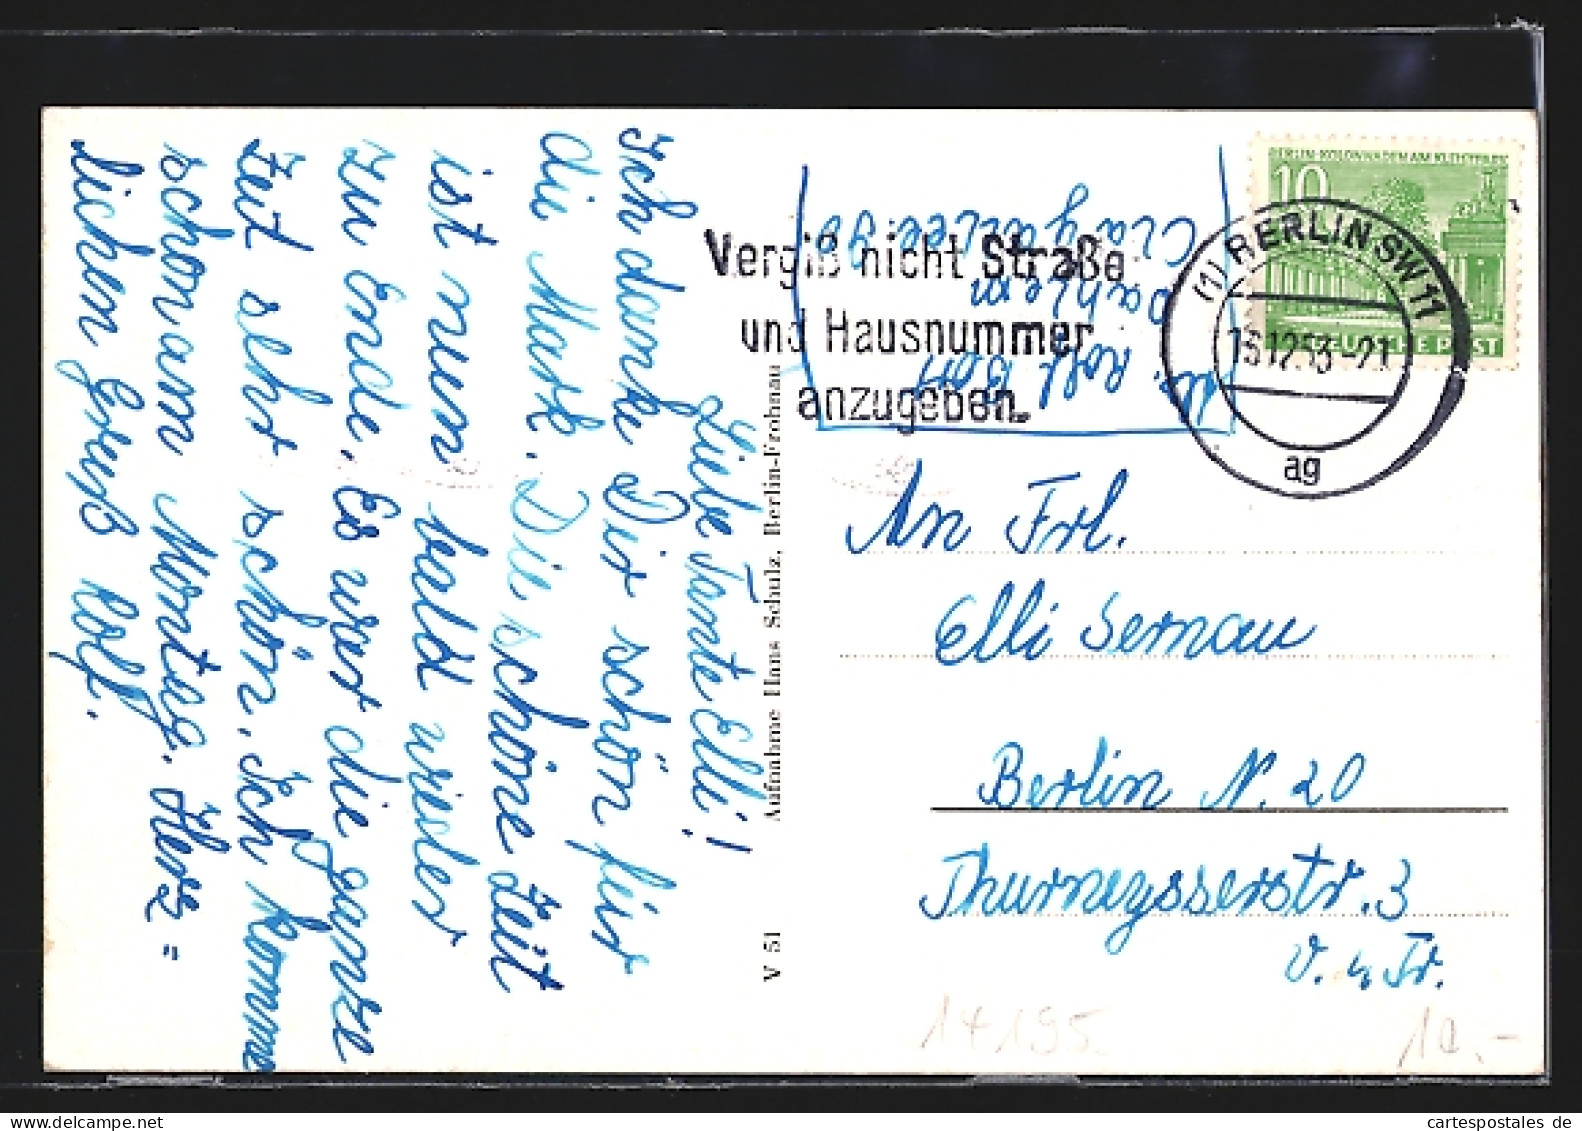 Liebe Tante Elli!
Ich danke Dir schön für
die Mark. Die schöne Zeit
ist nun bald wieder
zu Ende. Es war die ganze
Zeit sehr schön. Ich komme
schon am Montag. Herz=
lichen Gruß Rolf.
Aufnahme Hans Schulz, Berlin-Frohnau
V 51
Rolf
Dahlem
Vergiß nicht Straße
und Hausnummer
anzugeben.
BERLIN-KOLONNADEN AM KLEISTPARK
10
DEUTSCHE POST
(1) BERLIN SW 11
12.53-21
ag
An Frl.
Elli Sernau
Berlin N. 20
Thurneysserstr. 3
v. 4 Tr.
14195
10,-
cartespostales de